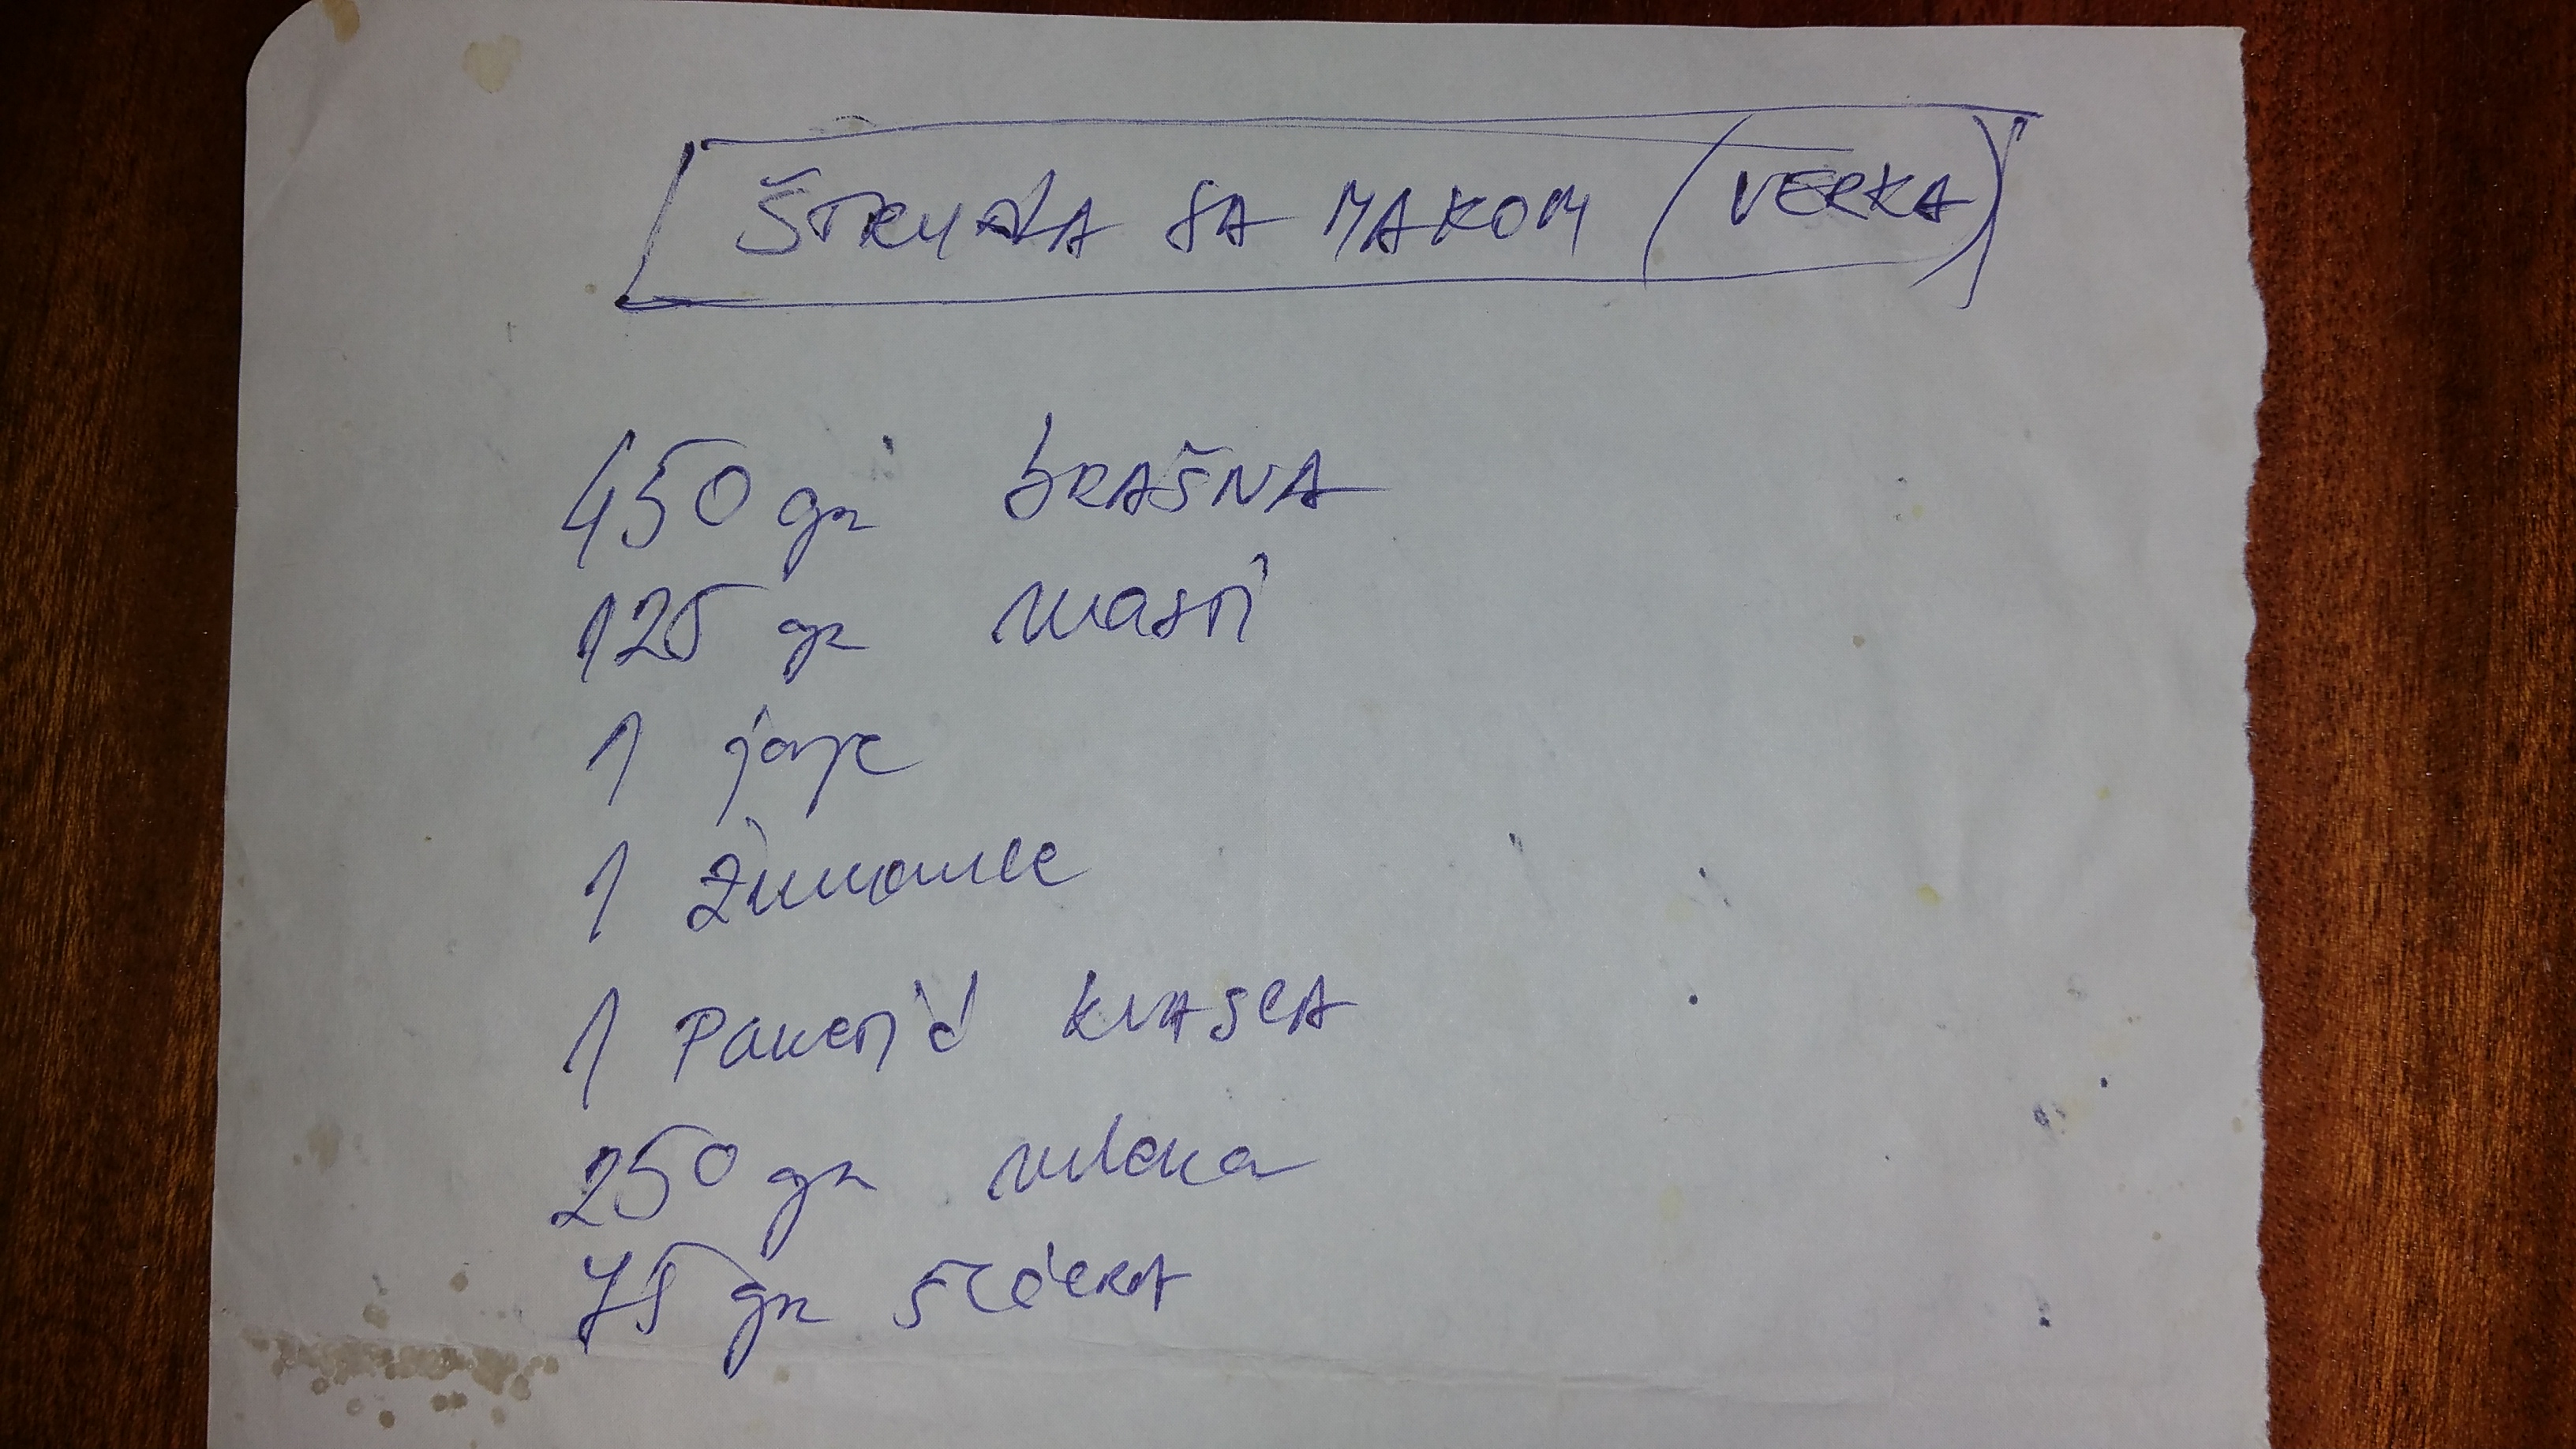 ŠTRUDLA SA MAKOM (VERKA)
450 gr BRAŠNA
125 gr masti
1 jaje
1 žumance
1 paketić kvasca
250 gr mleka
75 gr šećera